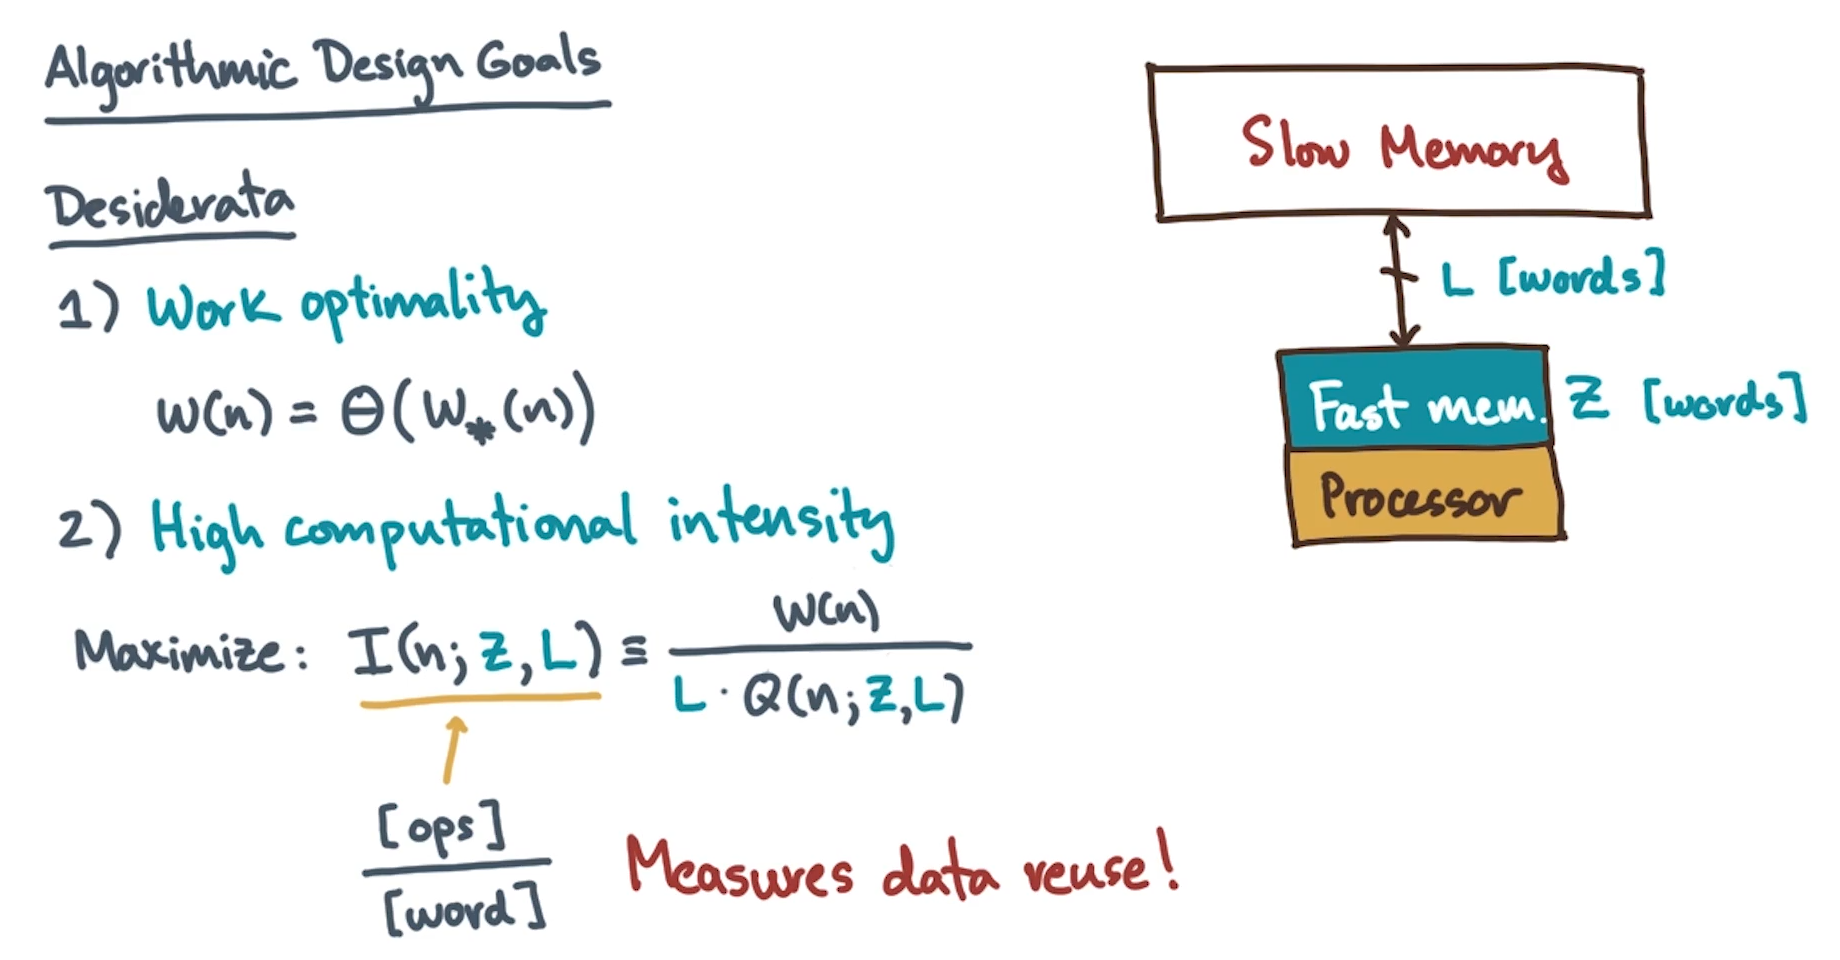 Algorithmic Design Goals
Desiderata
1) Work optimality
W(n) = Θ(W_*(n))
2) High computational intensity
Maximize: I(n; Z, L) ≡ W(n) / L · Q(n; Z, L)
[ops]
[word]
Measures data reuse!
Slow Memory
L [words]
Fast mem. Z [words]
Processor